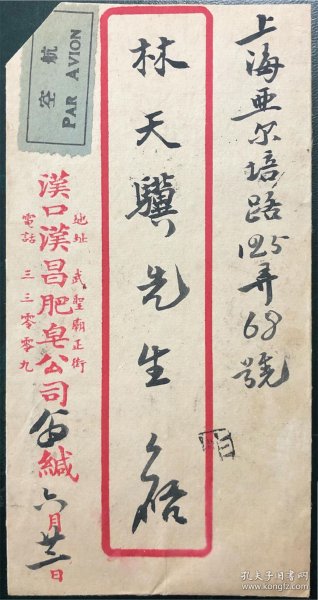 上海亚尔培路125弄68號
林天驥先生台啓
地址 武聖廟正街
漢口漢昌肥皂公司 緘
電話 三三零零九
六月廿二日
航空
PAR AVION
孔夫子旧书网
www.kongfz.com